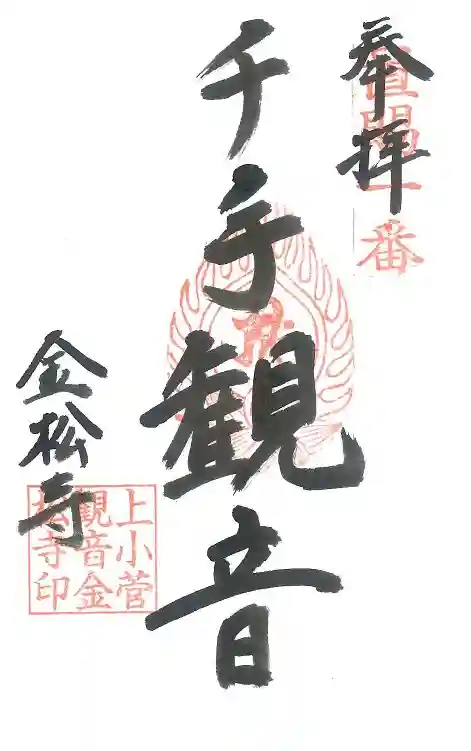 奉拝
一番
千手観音
金松寺
上小菅
観音金
松寺印